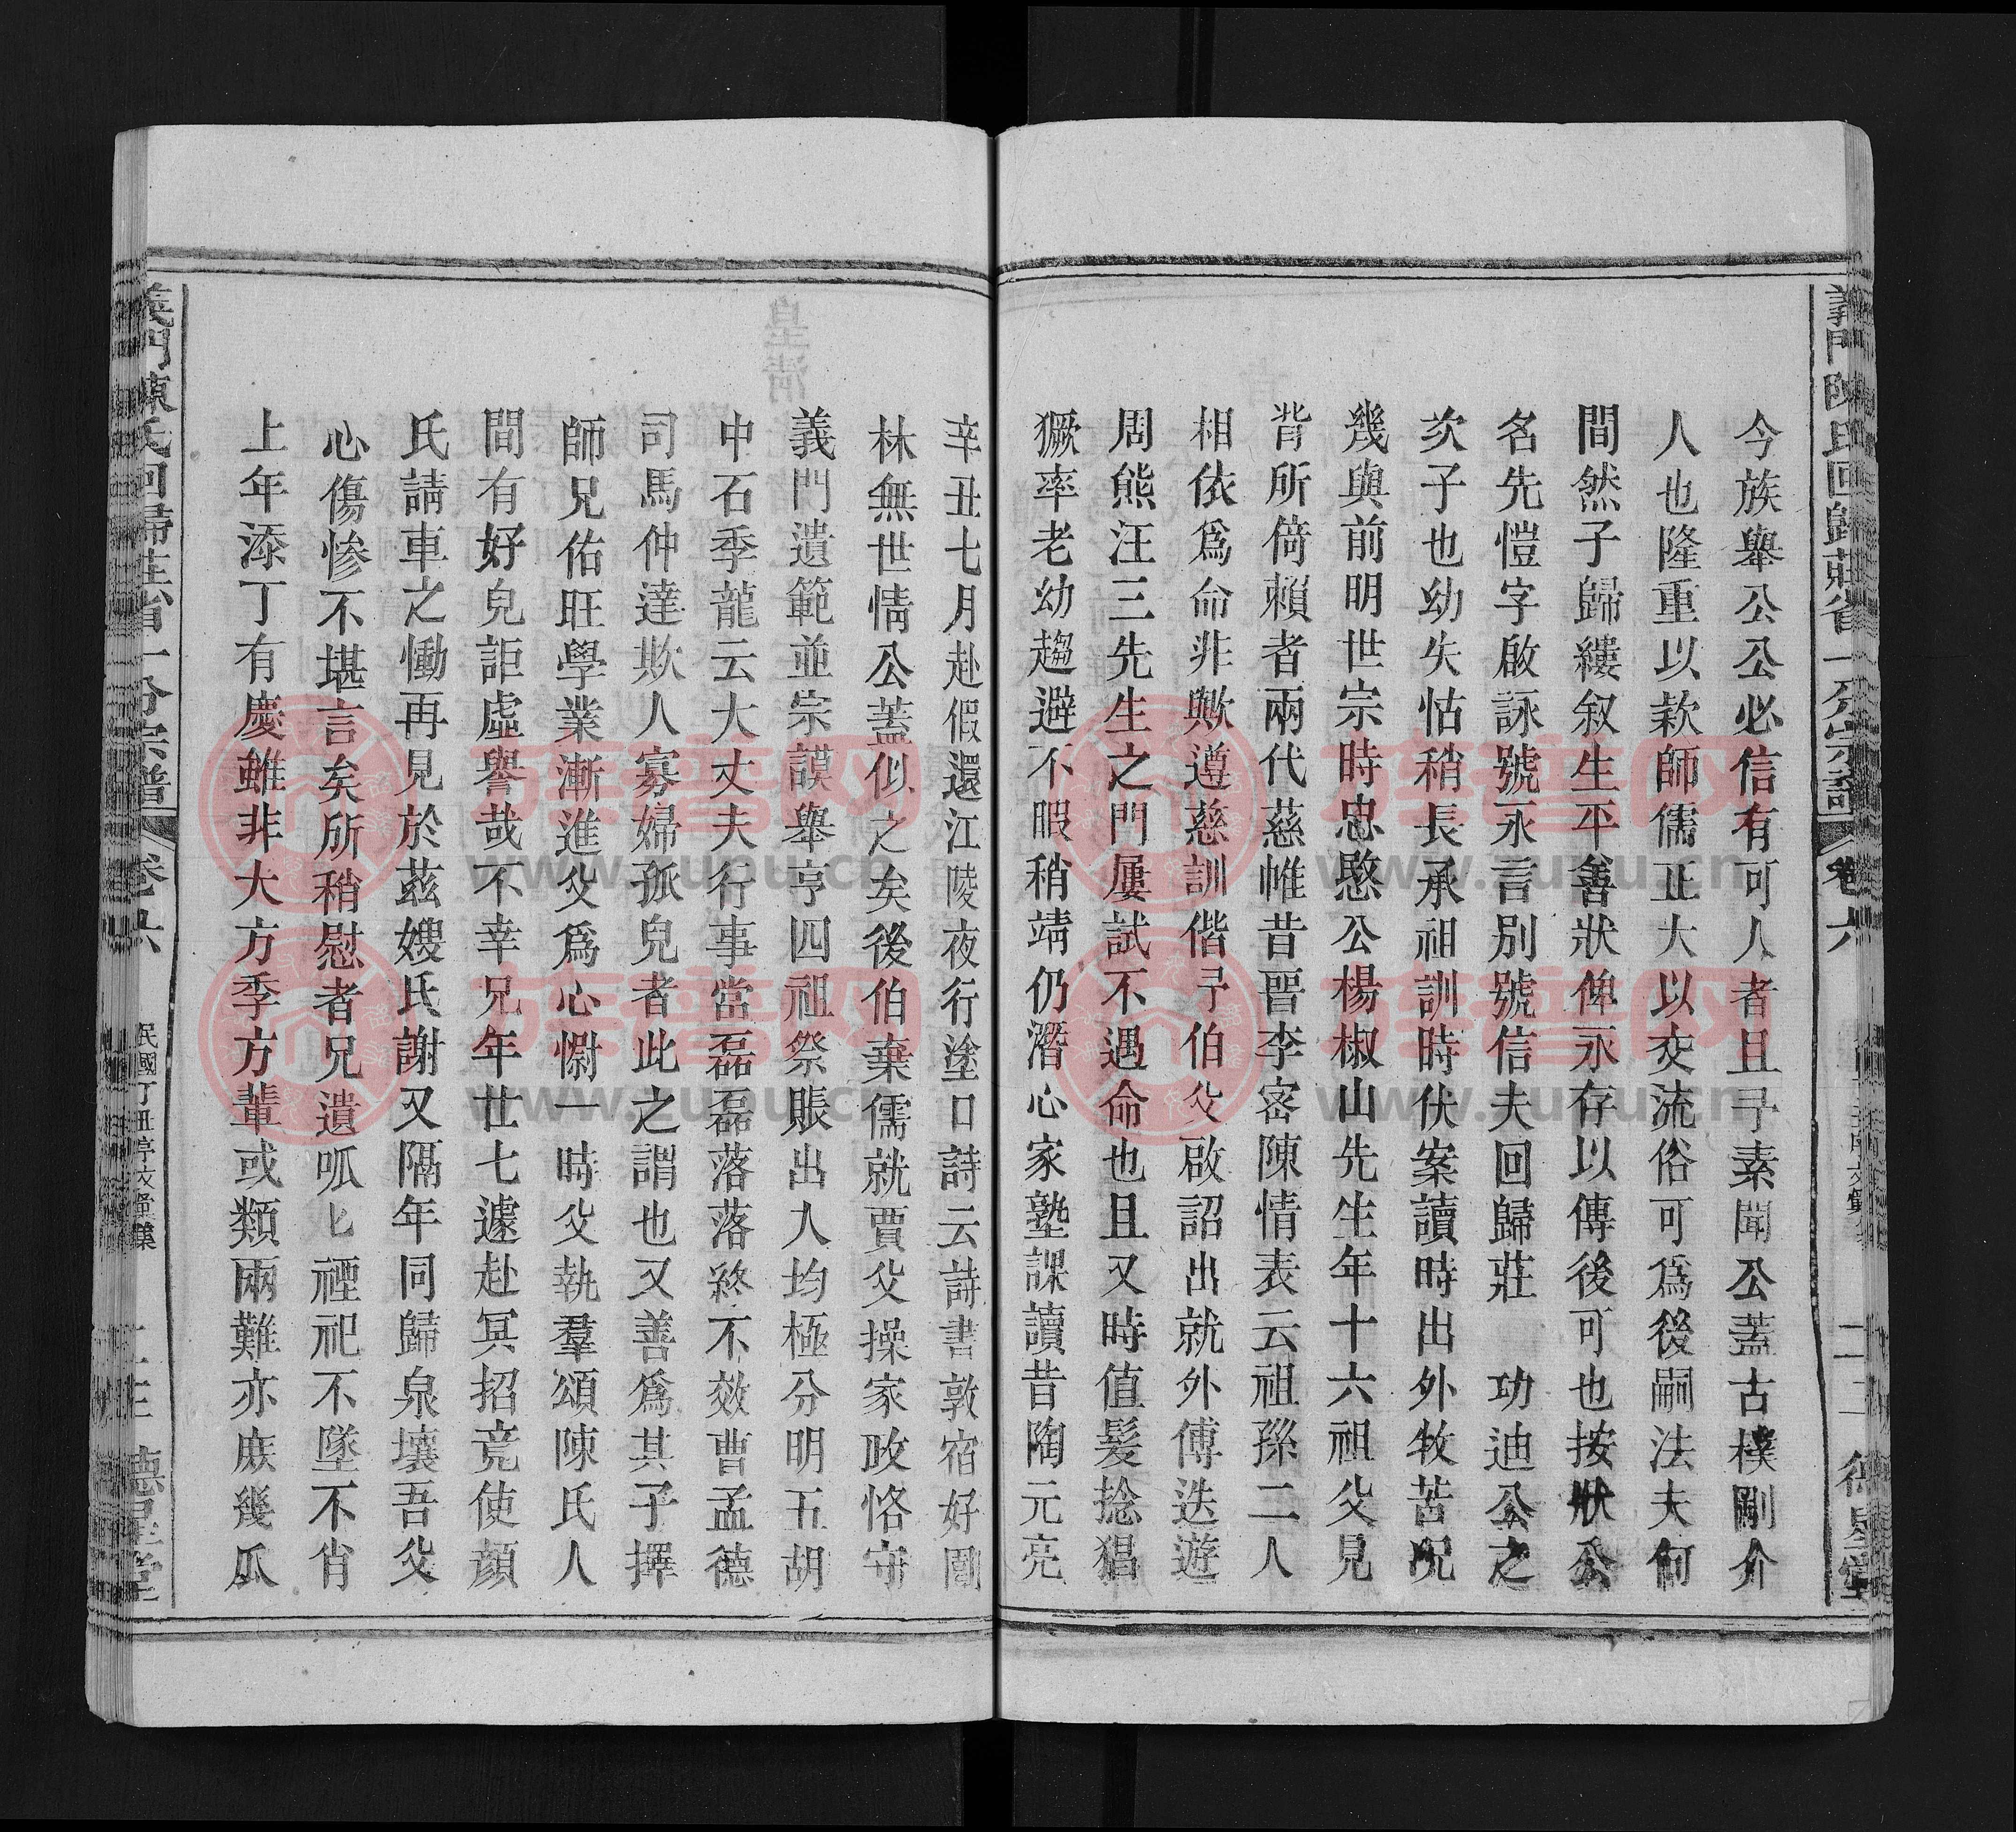 義門陳氏回歸莊省一分宗譜 卷六 二十二 德星堂
今族舉公公必信有可人者且予素聞公蓋古樸剛介
人也隆重以欵師儒正大以交流俗可爲後嗣法夫何
間然子歸縷叙生平善狀俾永存以傳後可也按狀公
名先愷字啟詠號永言別號信夫回歸莊 功迪公之
次子也幼失怙稍長承祖訓時伏案讀時出外牧苦况
幾與前明世宗時忠愍公楊椒山先生年十六祖父見
背所倚賴者兩代慈帷昔晉李密陳情表云祖孫二人
相依爲命非歟遵慈訓偕予伯父啟詔出就外傅迭遊
周熊汪三先生之門屢試不遇命也且又時值髮捻猖
獗率老幼趨避不暇稍靖仍潛心家塾課讀昔陶元亮
辛丑七月赴假還江陵夜行塗口詩云詩書敦宿好園
林無世情公蓋似之矣後伯棄儒就賈父操家政恪守
義門遺範並宗謨舉亨四祖祭賬出入均極分明五胡
中石季龍云大丈夫行事當磊磊落落終不效曹孟德
司馬仲達欺人寡婦孤兒者此之謂也又善爲其子擇
師兄佑旺學業漸進父爲心慰一時父執羣頌陳氏人
間有好兒詎虛譽哉不幸兄年廿七遽赴冥招竟使顏
氏請車之慟再見於茲嫂氏謝又隔年同歸泉壤吾父
心傷慘不堪言矣所稍慰者兄遺呱匕禋祀不墜不肖
上年添丁有慶雖非大方季方輩或類兩難亦庶幾瓜
義門陳氏回歸莊省一分宗譜 卷六 民國丁丑亭文彙集 二十三 德星堂